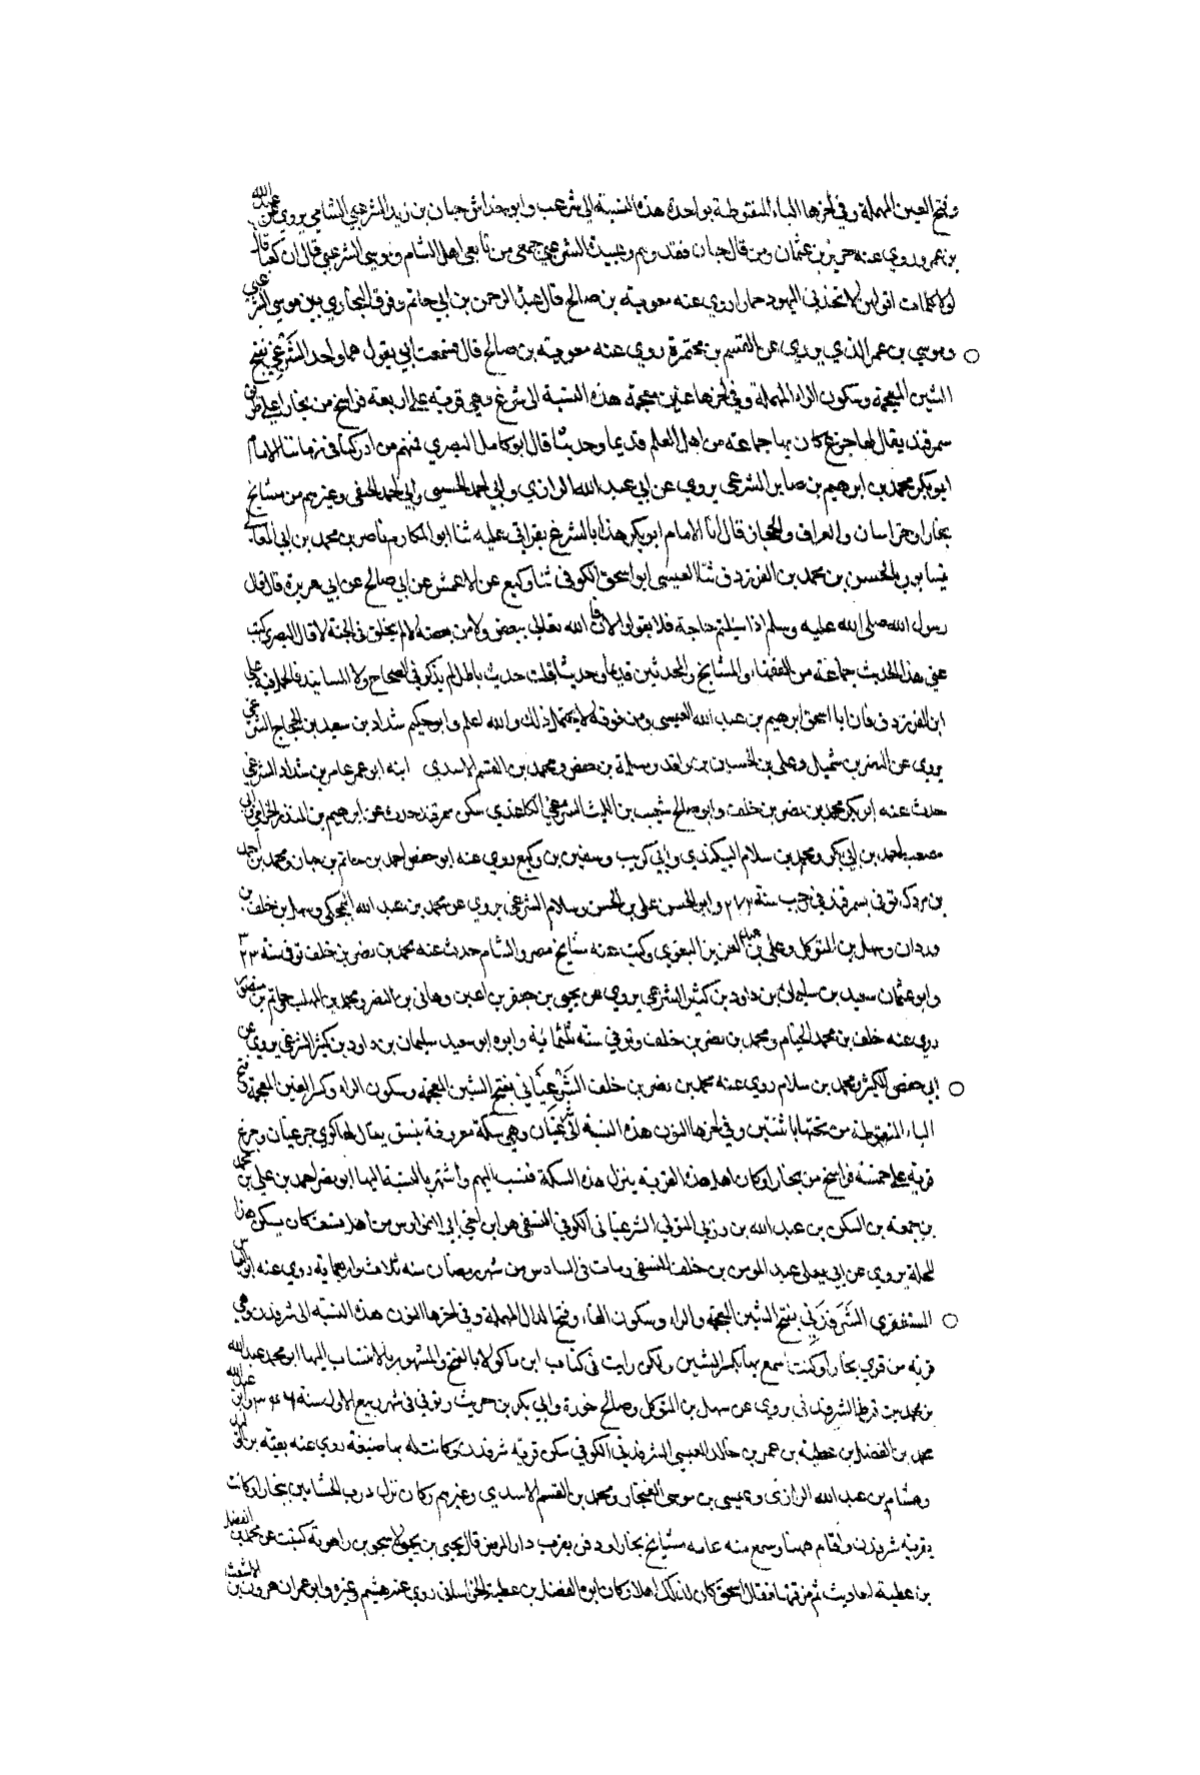 وفتح العين المهملة وفي اخرها الباء المنقوطة بواحدة هذه النسبة الى شرعب وابو خداش حبان بن زيد الشرعبي الشامي يروي عن عبد الله
بن عمر وروي عنه حريز بن عثمان ومن قال حبان فقد وهم وعبيدة الشرعبي حمصي من تابعي اهل الشام وموسى الشرعبي قال ان كعبا قال
لولا كلمات اقولهن لاتخذني اليهود حمارا روي عنه معوية بن صالح قال عبد الرحمن بن ابي حاتم وفرق البخاري بين موسى الشرعبي
وموسي بن عمر الذي يروي عن القسم بن مخيمرة روي عنه معوية بن صالح قال فسمعت ابي يقول هما واحد الشرغي بفتح
الشين المعجمة وسكون الراء المهملة وفي اخرها غين معجمة هذه النسبة الى شرغ وهي قرية على اربعة فراسخ من بخارا على طريق
سمرقند يقال لها جرغ كان بها جماعة من اهل العلم قديما وحديثا قال ابو كامل البصري فمنهم من ادركنا في زماننا الامام
ابو بكر محمد بن ابرهيم بن صابر الشرغي يروي عن ابي عبد الله الرازي وابي احمد الحسيني وابي احمد الحنفي وغيرهم من مشايخ
بخارا وخراسان والعراق والحجاز قال انا الامام ابو بكر هذا بالشرغ بقراتي عليه ثنا ابو المكارم ناصر بن محمد بن ابي المعالي
الحسن بن محمد بن الفرزدق ثنا العيسى ابو اسحق الكوفي ثنا وكيع عن الاعمش عن ابي صالح عن ابي هريرة قال قال
رسول الله صلى الله عليه وسلم اذا سئلتم حاجة فلا يقولن الا قا الله تعالى بيعض ولا من بعضه لا لم يخلق في الجنة لا قال البصري كتب
عني هذا الحديث جماعة من الفقهاء والمشايخ والمحدثين قديما وحديثا قلت حديث باطل لم يذكر في الصحاح ولا المسانيد فالحمل فيه على
ابن الفرزدق فان ابا اسحق ابرهيم بن عبد الله العبسي ومن فوقه لا يحتمل ذلك والله اعلم وابو حكيم شداد بن سعيد بن الحجاج الشرغي
يروي عن النضر بن شميل وعلي بن الحسين بن واقد وسلمة بن حفص ومحمد بن القسم الاسدي ابنه ابو عمر عامر بن شداد الشرغي
حدث عنه ابو بكر محمد بن نصر بن خلف وابو صالح شعيب بن الليث الشرغي الكاغذي سكن سمرقند حدث عن ابرهيم بن المنذر الحزامي وابي
مصعب احمد بن ابي بكر ومحمد بن سلام البيكندي وابي كريب وسفين بن وكيع روي عنه ابو حفص احمد بن حاتم بن حبان ومحمد بن احمد
بن مردك توفي بسمرقند في رجب سنة ٢٧٢ وابو الحسن علي بن الحسن بن سلام الشرغي يروي عن محمد بن عبد الله البمجكي وسهل بن خلف بن
وردان وسهل بن المتوكل وعلي بن عبد العزيز البغوي وكتب عنه مشايخ مصر والشام حدث عنه محمد بن نصر بن خلف توفي سنة ٣٢٣
وابو عثمان سعيد بن سليمان بن داود بن كثير الشرغي يروي عن يحيى بن جعفر بن اعين وهاني بن النضر ومحمد بن المهلب وحاتم بن منصور
روي عنه خلف بن محمد الخيام ومحمد بن نصر بن خلف وتوفي سنة ثلثمائة وابوه ابو سعيد سليمان بن داود بن كثير الشرغي يروي عن
ابي حفص الكبير ومحمد بن سلام روي عنه محمد بن نصر بن خلف الشرغياني بفتح الشين المعجمة وسكون الراء وكسر الغين المعجمة وفتح
الياء المنقوطة من تحتها باثنتين وفي اخرها النون هذه النسبة الى شرغيان وهي سكة معروفة بنسف يقال لها كوي جرغيان وجرغ
قرية على خمسة فراسخ من بخارا وكان اهل هذه القرية ينزل هذه السكة فنسب اليهم واشتهر بالنسبة اليها ابو نصر احمد بن علي بن محمد
بن جمعة بن السكن بن عبد الله بن رزين المولى الشرغياني الكوفي النسفي هو ابن اخي ابي الفوارس من اهل نسف كان يسكن هذا
المحلة يروي عن ابي يعلى عبد المومن بن خلف النسفي ومات في السادس من شهر رمضان سنه ثلاث واربعماية روي عنه ابو العباس
المستغفري الشرفدني بفتح الشين المعجمة والراء وسكون الفاء وفتح الدال المهملة وفي اخرها النون هذه النسبة الى شرفدن وهي
قرية من قري بخارا وكنت اسمع بها بكسر الشين ولكن رايت في كتاب ابن ماكولا بالفتح والمشهور بالانتساب اليها ابو محمد عبد الله
بن محمد بن قرط الشرفدني يروي عن سهل بن المتوكل وصالح جزرة وابي بكر بن حريث وتوفي في شهر ربيع الاول سنة ٣٤٦ وابو عبد الله
محمد بن الفضل بن عطية بن عمر بن خالد العبسي الشرفدني الكوفي سكن قرية شرفدن وكانت له بها ضيعة روي عنه بقية بن الوليد
وهشام بن عبد الله الرازي وعيسى بن موسى الغنجار ومحمد بن القسم الاسدي وغيرهم وكان نزل درب الخشابين ببخارا وكانت
بقرية شرفدن واقام هنا وسمع منه عامه مشايخ بخارا ودفن بقرب دار المرضى قال يحيى بن يحيى لاسحق بن راهوية كتبت عن محمد بن الفضل
بن عطية احاديث ثم مزقتها فقال اسحق كان لذلك اهلا وكان ابوه الفضل بن عطية الخراساني روي عنه هشيم وغيره وابو عمران هرون بن الاشعث